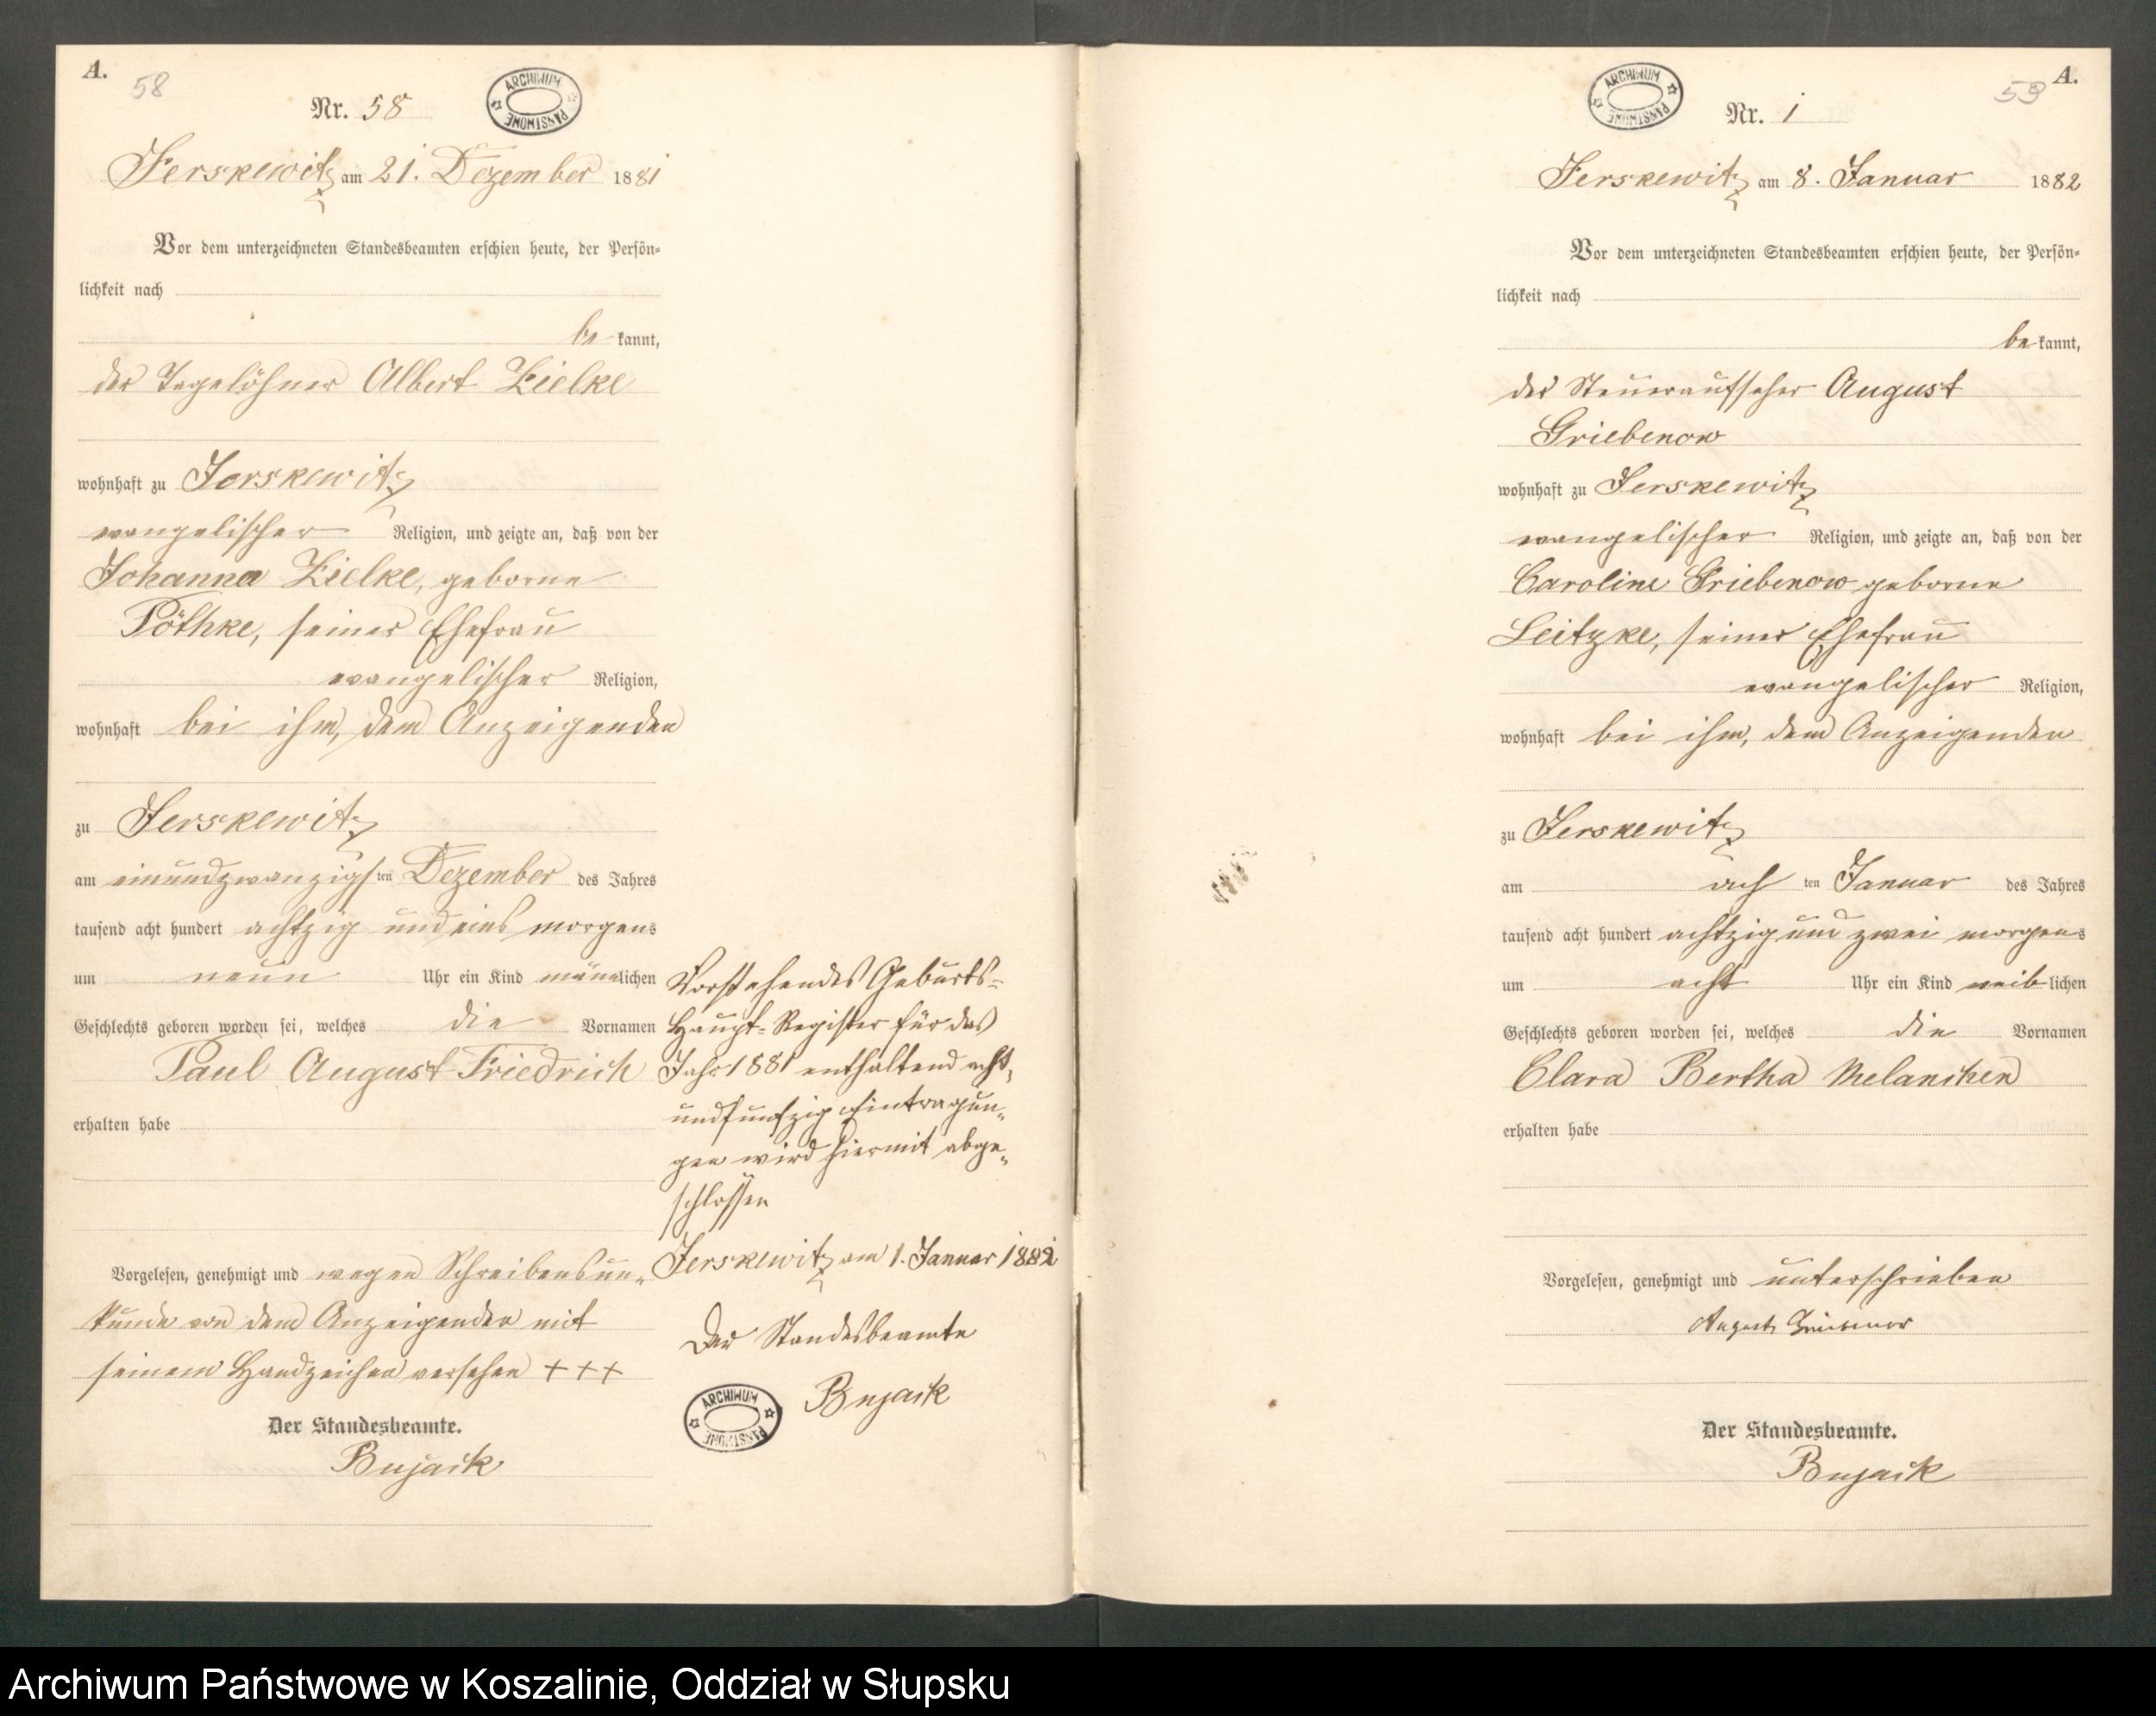 A.
58
Nr. 58
ARCHIWUM PAŃSTWOWE
Jerskewitz am 21. Dezember 1881
Vor dem unterzeichneten Standesbeamten erschien heute, der Persön-
lichkeit nach
be kannt,
der Tagelöhner Albert Zielke
wohnhaft zu Jerskewitz
evangelischer Religion, und zeigte an, daß von der
Johanna Zielke, geborne
Pöthke, seiner Ehefrau
evangelischer Religion,
wohnhaft bei ihm, dem Anzeigenden
zu Jerskewitz
am einundzwanzigsten Dezember des Jahres
tausend acht hundert achtzig und eins morgens
um neun Uhr ein Kind männlichen
Geschlechts geboren worden sei, welches die Vornamen
Paul August Friedrich
erhalten habe
Vorgelesen, genehmigt und wegen Schreibensun-
kunde von dem Anzeigenden mit
seinem Handzeichen versehen +++
Der Standesbeamte.
Bujack
Vorstehendes Geburts-
Haupt-Register für das
Jahr 1881 enthaltend acht-
undfunfzig Eintragun-
gen wird hiermit abge-
schlossen
Jerskewitz am 1. Januar 1882
Der Standesbeamte
Bujack
ARCHIWUM PAŃSTWOWE
A.
59
ARCHIWUM PAŃSTWOWE
Nr. 1
Jerskewitz am 8. Januar 1882
Vor dem unterzeichneten Standesbeamten erschien heute, der Persön-
lichkeit nach
be kannt,
der Steueraufseher August
Griebenow
wohnhaft zu Jerskewitz
evangelischer Religion, und zeigte an, daß von der
Caroline Griebenow geborne
Leitzke, seiner Ehefrau
evangelischer Religion,
wohnhaft bei ihm, dem Anzeigenden
zu Jerskewitz
am ach ten Januar des Jahres
tausend acht hundert achtzig und zwei morgens
um acht Uhr ein Kind weiblichen
Geschlechts geboren worden sei, welches die Vornamen
Clara Bertha Melanchen
erhalten habe
Vorgelesen, genehmigt und unterschrieben
August Griebenow
Der Standesbeamte.
Bujack
Archiwum Państwowe w Koszalinie, Oddział w Słupsku